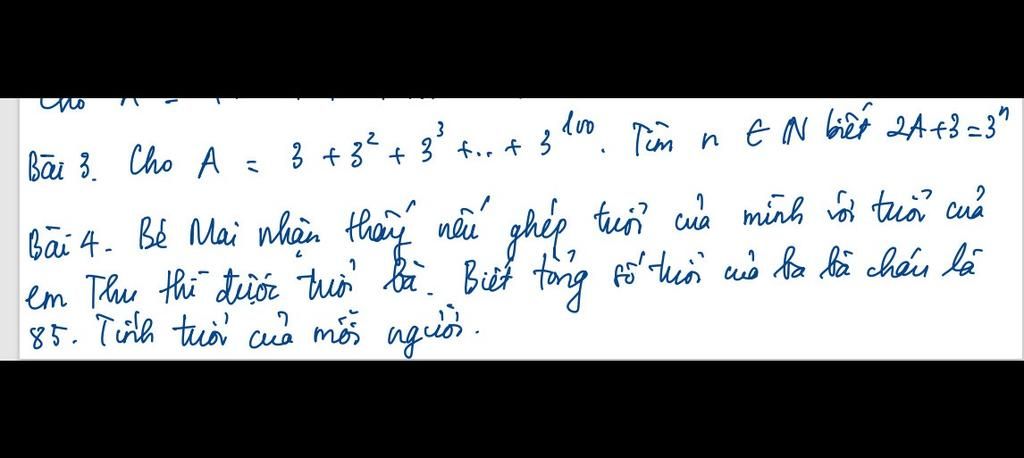 Cho A =
Bài 3. Cho A = 3 + 3² + 3³ +...+ 3¹⁰⁰. Tìm n ∈ N biết 2A+3=3ⁿ
Bài 4. Bé Mai nhận thấy nếu ghép tuổi của mình với tuổi của
em Thu thì được tuổi bà. Biết tổng số tuổi của ba bà cháu là
85. Tính tuổi của mỗi người.